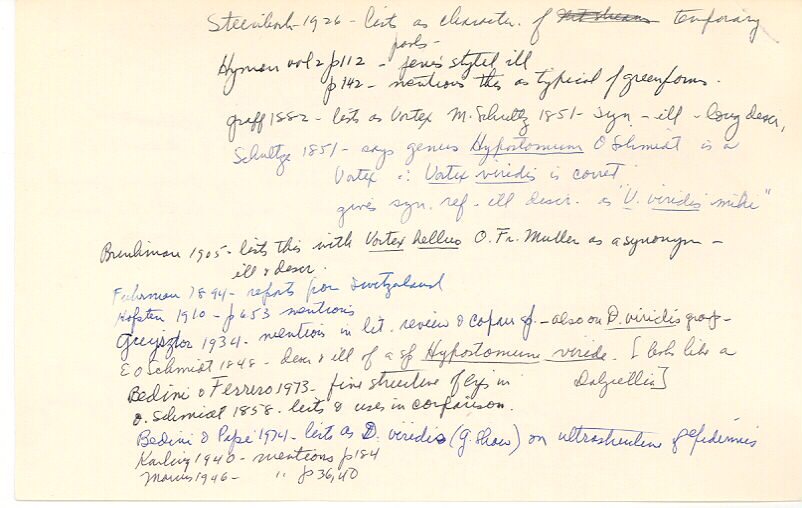 Steinbock 1926 - lists as character. of temporary
pools -
Hyman vol 2 p112 - penis stylet ill
p 142 - mentions this as typical of green forms.
Graff 1882 - lists as Vortex M. Schultz 1851 - syn - ill - long descr,
Schultze 1851 - says genus Hypostomum O Schmidt is a
Vortex ∴ Vortex viridis is correct
gives syn. ref - ill descr. as "V. viridis mihi"
1905 - lists this with Vortex helluo O. Fr. Muller as a synonym -
ill & descr.
Fuhrman 1894 - reports from Switzerland
Hofsten 1910 - p 653 mentions
1934 - mentions in lit. review & compar of. - also on D. viridis group -
E O Schmidt 1848 - descr & ill of a sp Hypostomum viride. [looks like a
Dalyellia]
Bedini & Ferrero 1973 - fine structure of eye in
O. Schmidt 1858 - lists & uses in comparison.
Bedini & Papi 1974 - lists as D. viridis (G. Shaw) on ultrastructure of epidermis
Karling 1940 - mentions p 184
1946 - " p 36, 40